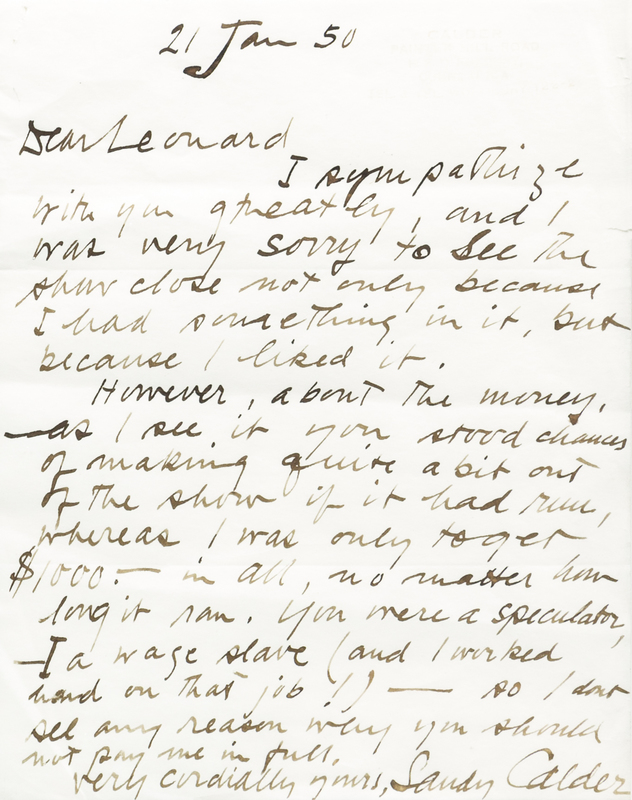 21 Jan 50
Dear Leonard
I sympathize
with you greatly, and I
was very sorry to see the
show close not only because
I had something in it, but
because I liked it.
However, about the money,
—as I see it you stood chances
of making quite a bit out
of the show if it had run,
whereas I was only to get
$1000.— in all, no matter how
long it ran. You were a speculator,
—I a wage slave (and I worked
hard on that job!) — so I dont
see any reason why you should
not pay me in full.
Very cordially yours, Sandy Calder